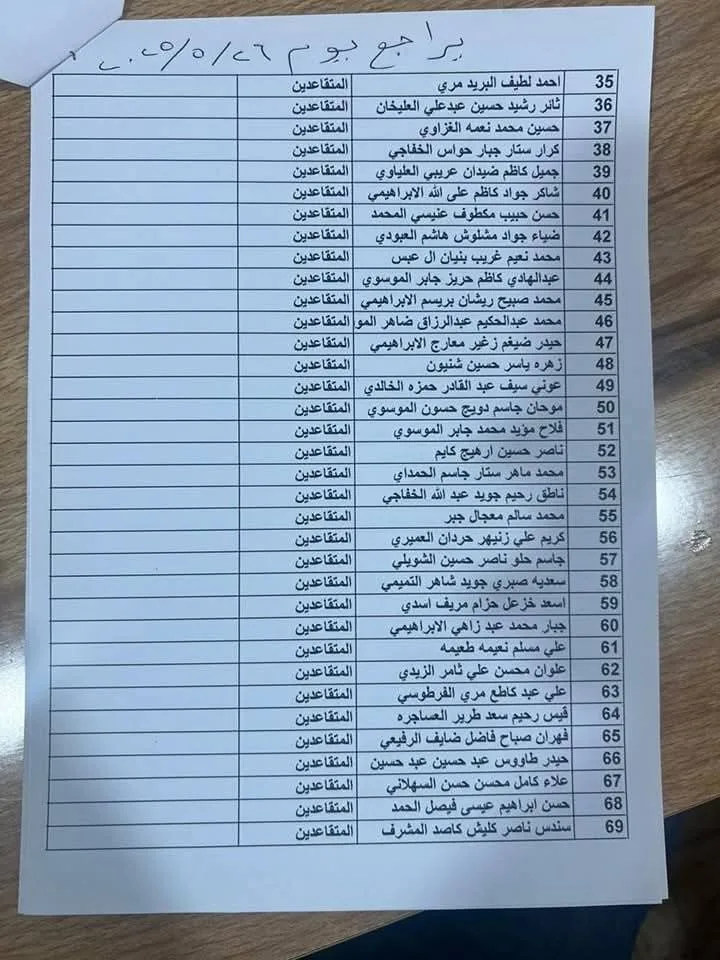 يراجع يوم ٢٦/٥/٢٠٢٥
35 احمد لطيف البريد مري المتقاعدين
36 ثائر رشيد حسين عبدعلي العليخان المتقاعدين
37 حسين محمد نعمه الغزاوي المتقاعدين
38 كرار ستار جبار حواس الخفاجي المتقاعدين
39 جميل كاظم ضيدان عريبي العلياوي المتقاعدين
40 شاكر جواد كاظم على الله الابراهيمي المتقاعدين
41 حسن حبيب مكطوف عنيسي المحمد المتقاعدين
42 ضياء جواد مشلوش هاشم العبودي المتقاعدين
43 محمد نعيم غريب بنيان ال عبس المتقاعدين
44 عبدالهادي كاظم حريز جابر الموسوي المتقاعدين
45 محمد صبيح ريشان بريسم الابراهيمي المتقاعدين
46 محمد عبدالحكيم عبدالرزاق ضاهر المو المتقاعدين
47 حيدر ضيغم زغير معارج الابراهيمي المتقاعدين
48 زهره ياسر حسين شنيون المتقاعدين
49 عوني سيف عبد القادر حمزه الخالدي المتقاعدين
50 موحان جاسم دويج حسون الموسوي المتقاعدين
51 فلاح مؤيد محمد جابر الموسوي المتقاعدين
52 ناصر حسين ارهيج كايم المتقاعدين
53 محمد ماهر ستار جاسم الحمداي المتقاعدين
54 ناطق رحيم جويد عبد الله الخفاجي المتقاعدين
55 محمد سالم معجال جبر المتقاعدين
56 كريم علي زنيهر حردان العميري المتقاعدين
57 جاسم حلو ناصر حسين الشويلي المتقاعدين
58 سعديه صبري جويد شاهر التميمي المتقاعدين
59 اسعد خزعل حزام مريف اسدي المتقاعدين
60 جبار محمد عبد زاهي الابراهيمي المتقاعدين
61 علي مسلم نعيمه طعيمه المتقاعدين
62 علوان محسن علي ثامر الزيدي المتقاعدين
63 علي عبد كاطع مري الفرطوسي المتقاعدين
64 قيس رحيم سعد طرير العساجره المتقاعدين
65 فهران صباح فاضل ضايف الرفيعي المتقاعدين
66 حيدر طاووس عبد حسين عبد حسين المتقاعدين
67 علاء كامل محسن حسن السهلاني المتقاعدين
68 حسن ابراهيم عيسى فيصل الحمد المتقاعدين
69 سندس ناصر كليش كاصد المشرف المتقاعدين